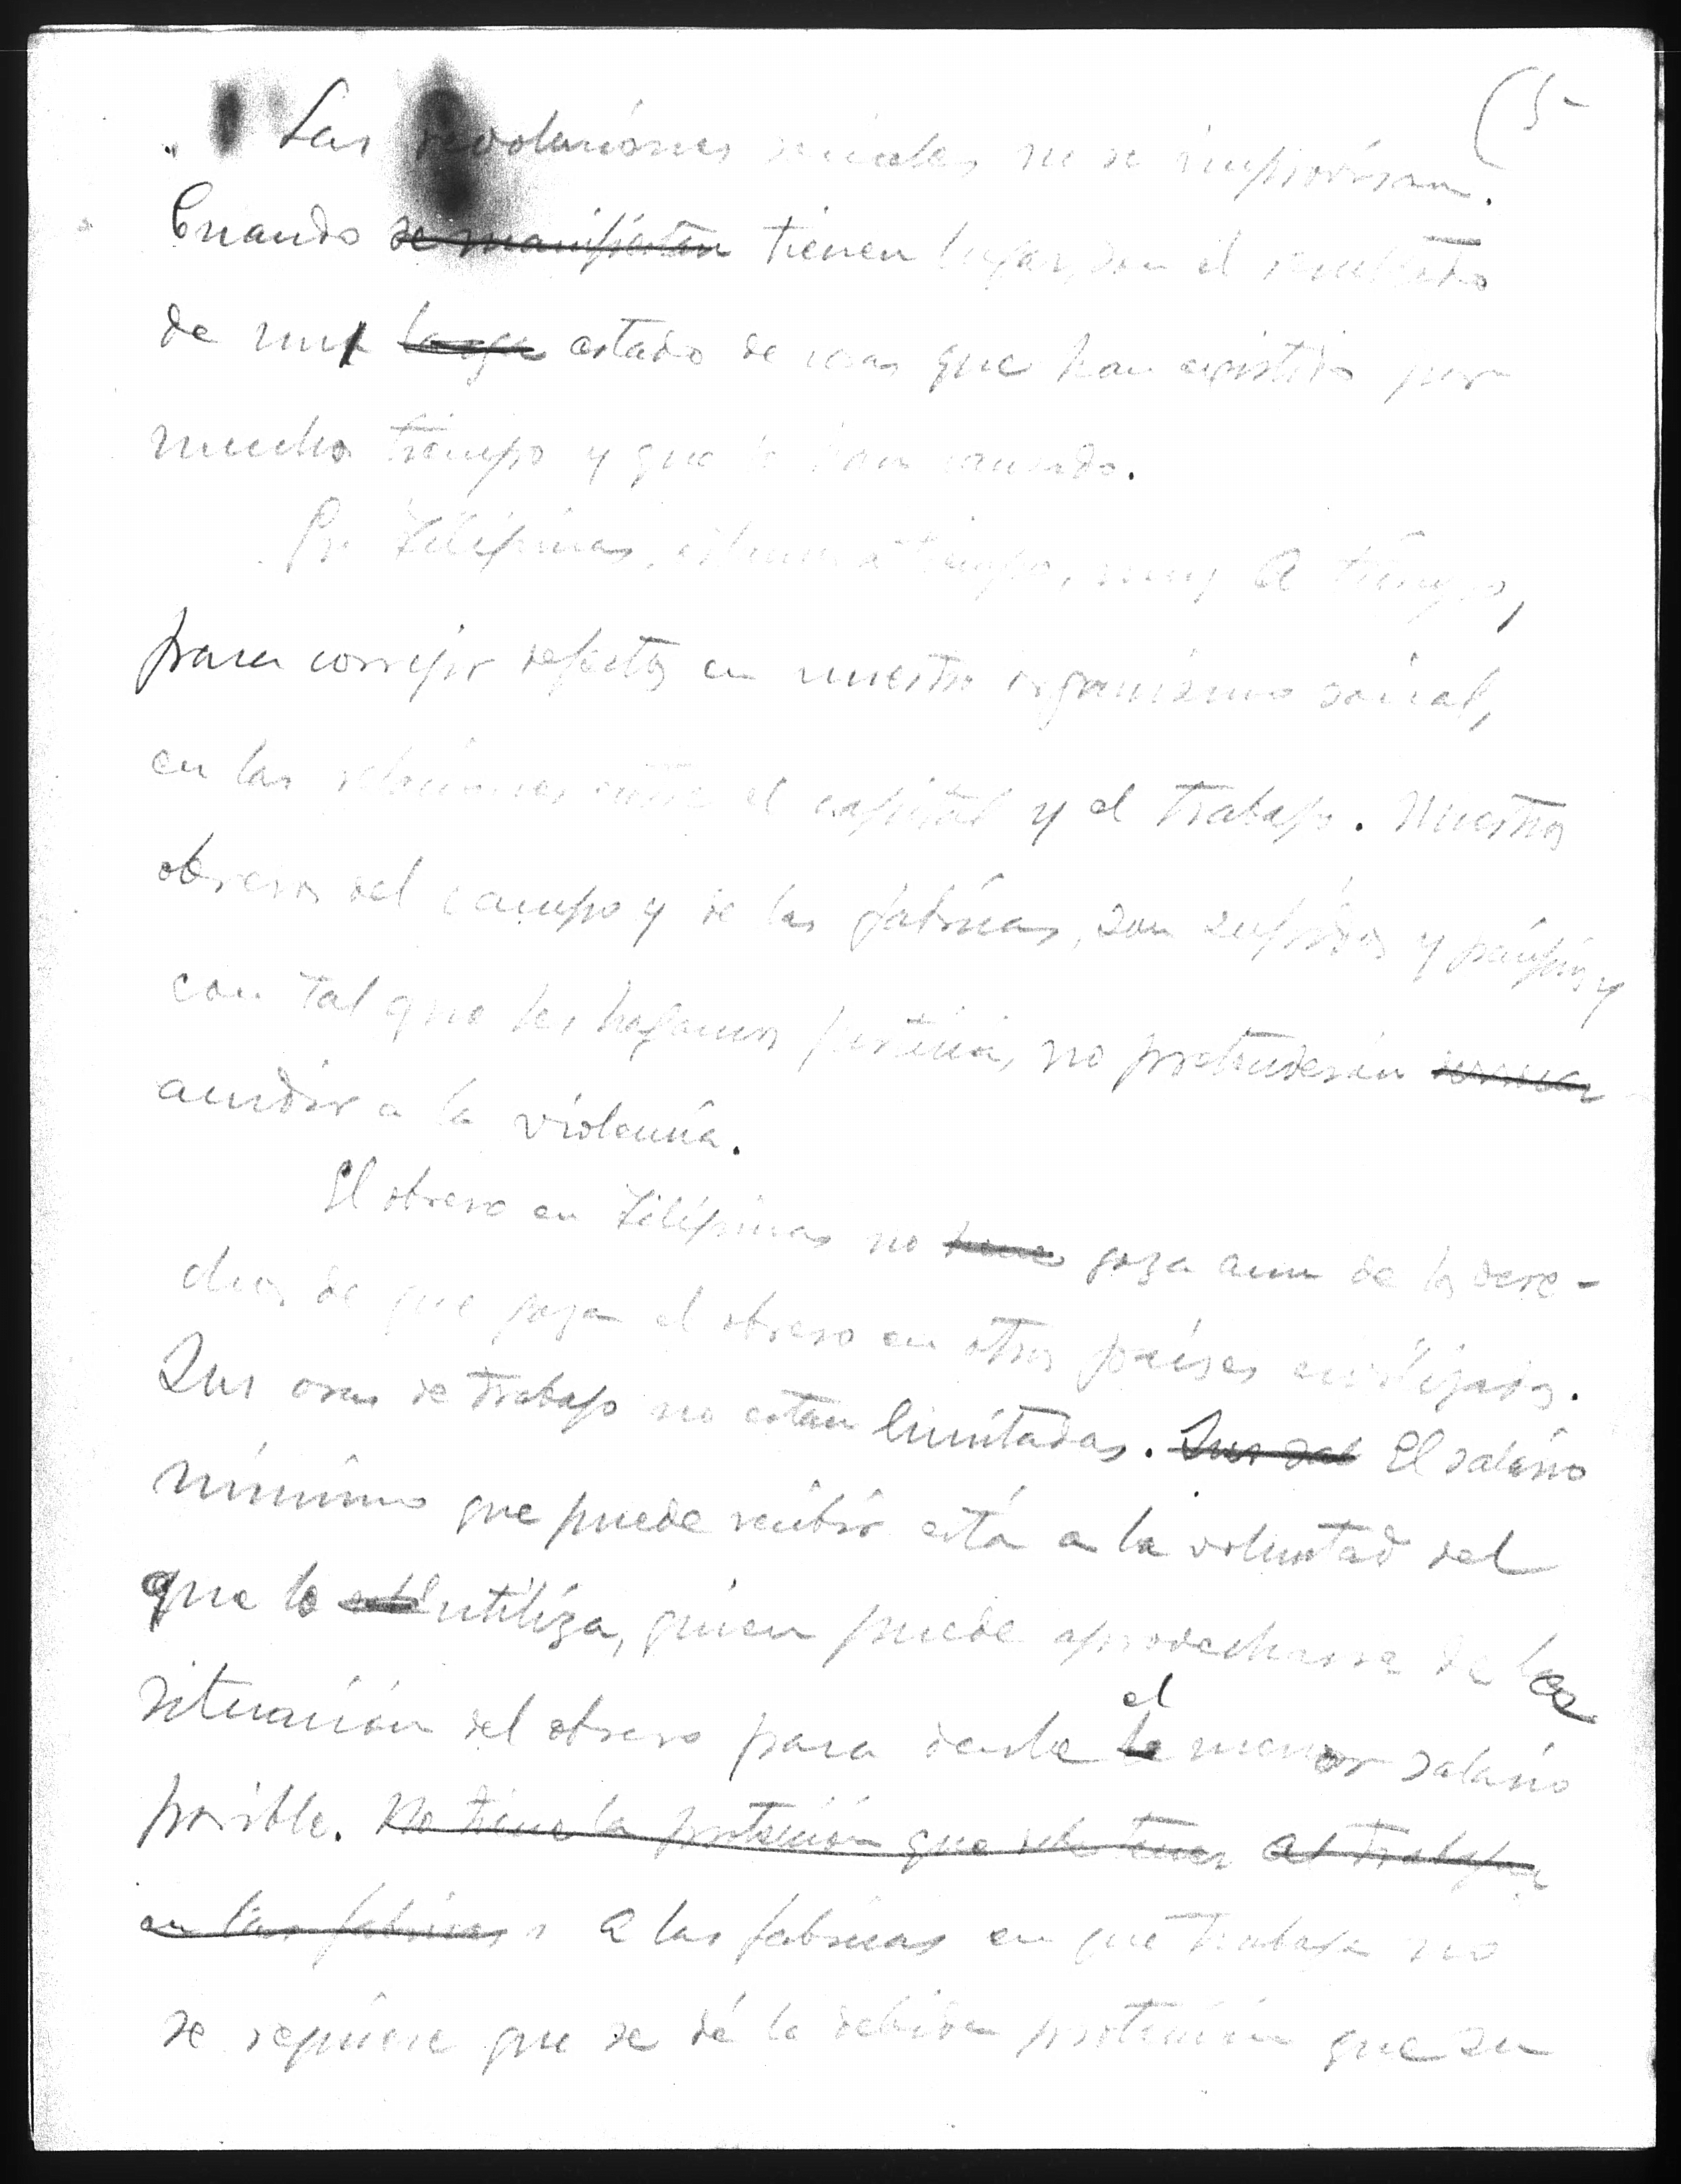 (5-
Las revoluciones sociales no se improvisan.
Cuando se manifiestan tienen lugar, son el resultado
de un larga estado de cosas que han existido por
mucho tiempo y que la han causado.
En Filipinas, estamos a tiempo, muy a tiempo,
para correjir defectos en nuestro organismo social,
en las relaciones entre el capital y el trabajo. Nuestros
obreros del campo y de las fabricas, son sufridos y
con tal que les hagamos justicia, no pretenderán
acudir a la violencia.
El obrero en Filipinas no tiene goza aun de los dere-
chos de que goza el obrero en otros paises civilizados.
Sus oras de trabajo no estan limitadas. Sus sal El salario
mínimo que puede recibir está a la voluntad del
que lo utiliza, quien puede aprovecharse de la
situación del obrero para darle el menor salario
posible. No tiene la protección que debe tener al trabajar
en las fabricas A las fabricas en que trabaja no
se requiere que se dé la debida protección que su